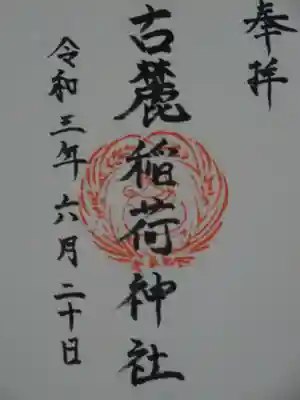 奉拝
古麓稲荷神社
令和三年六月二十日